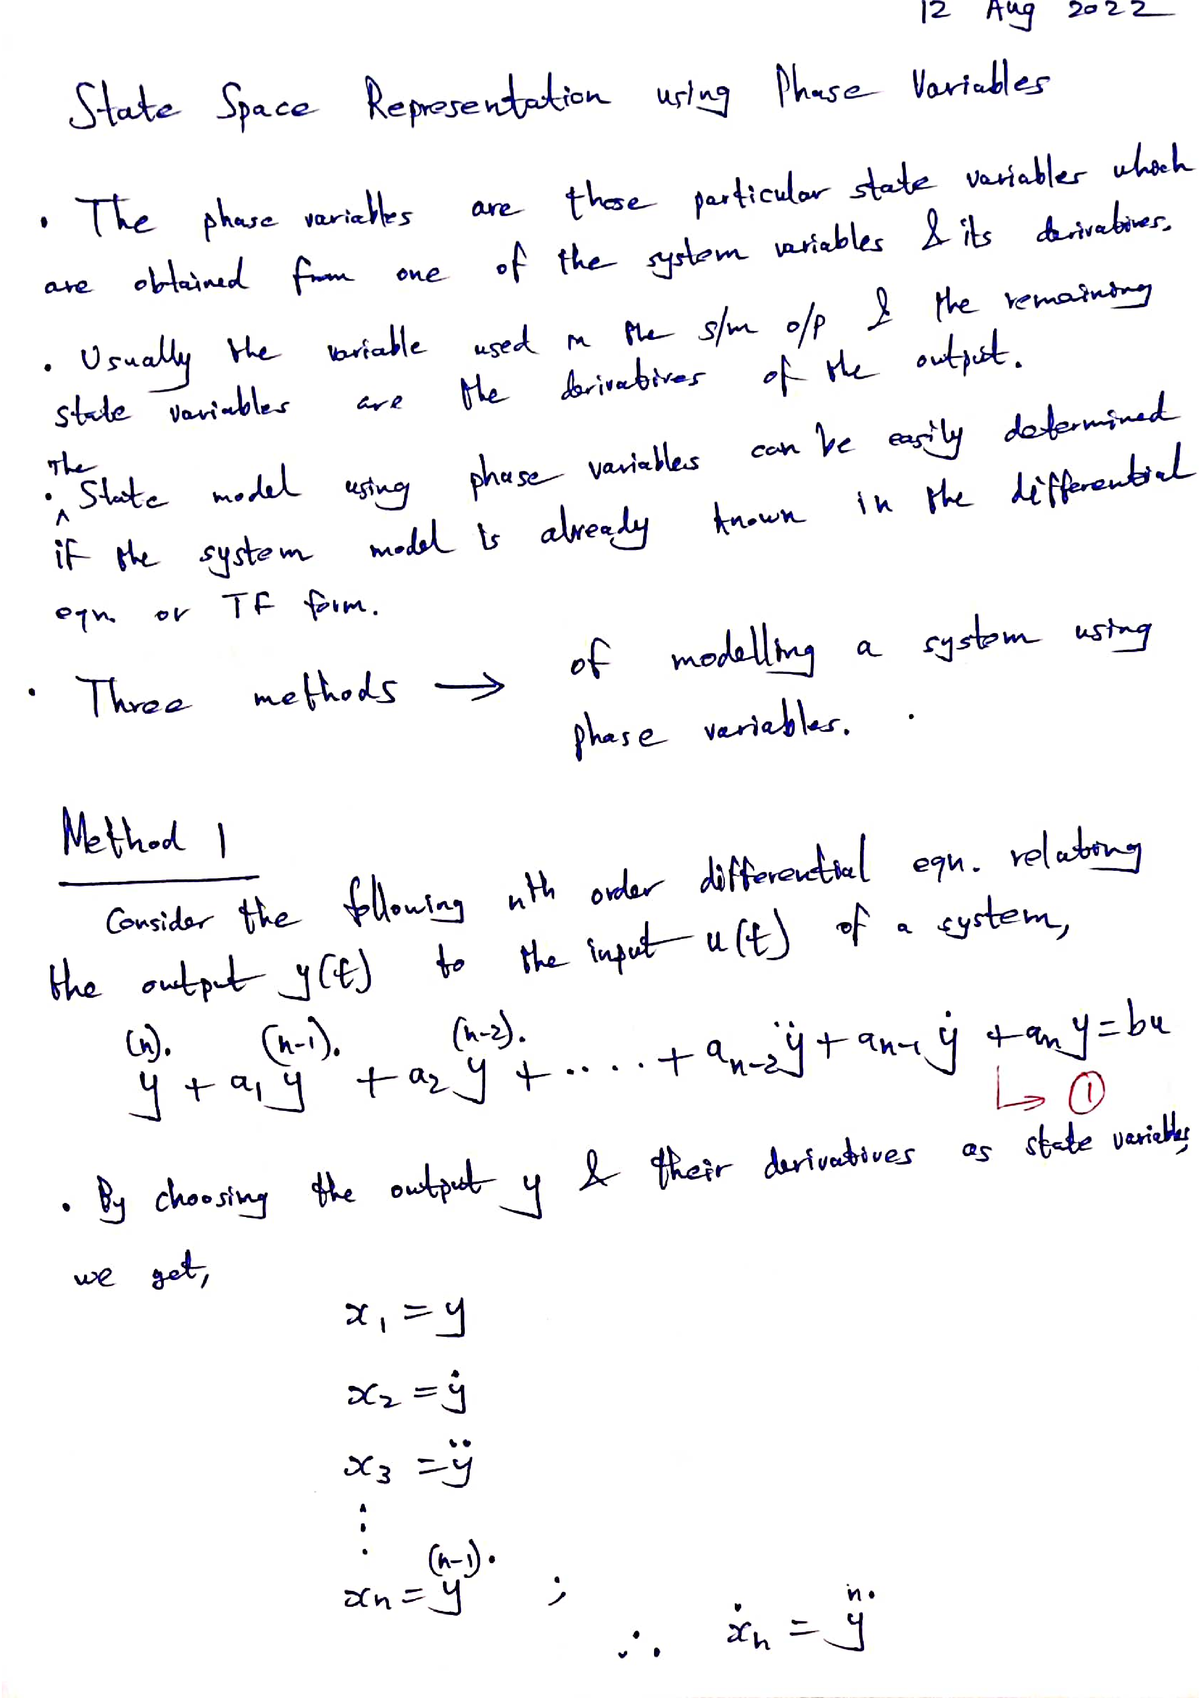 12 Aug 2022
State Space Representation using Phase Variables
• The phase variables are those particular state variables which
are obtained from one of the system variables & its derivatives.
• Usually the variable used in the s/m o/p & the remaining
state variables are the derivatives of the output.
The
• ^ State model using phase variables can be easily determined
if the system model is already known in the differential
eqn. or TF form.
• Three methods → of modelling a system using
phase variables.
Method 1
Consider the following nth order differential eqn. relating
the output y(t) to the input u(t) of a system,
(n). (n-1). (n-2).
y + a₁ y + a₂ y + ..... + aₙ₋₂ ÿ + aₙ₋₁ ẏ + aₙ y = bu
↳ ①
• By choosing the output y & their derivatives as state variables,
we get,
x₁ = y
x₂ = ẏ
x₃ = ÿ
⋮
(n-1).
xₙ = y ;
n.
∴ ẋₙ = y